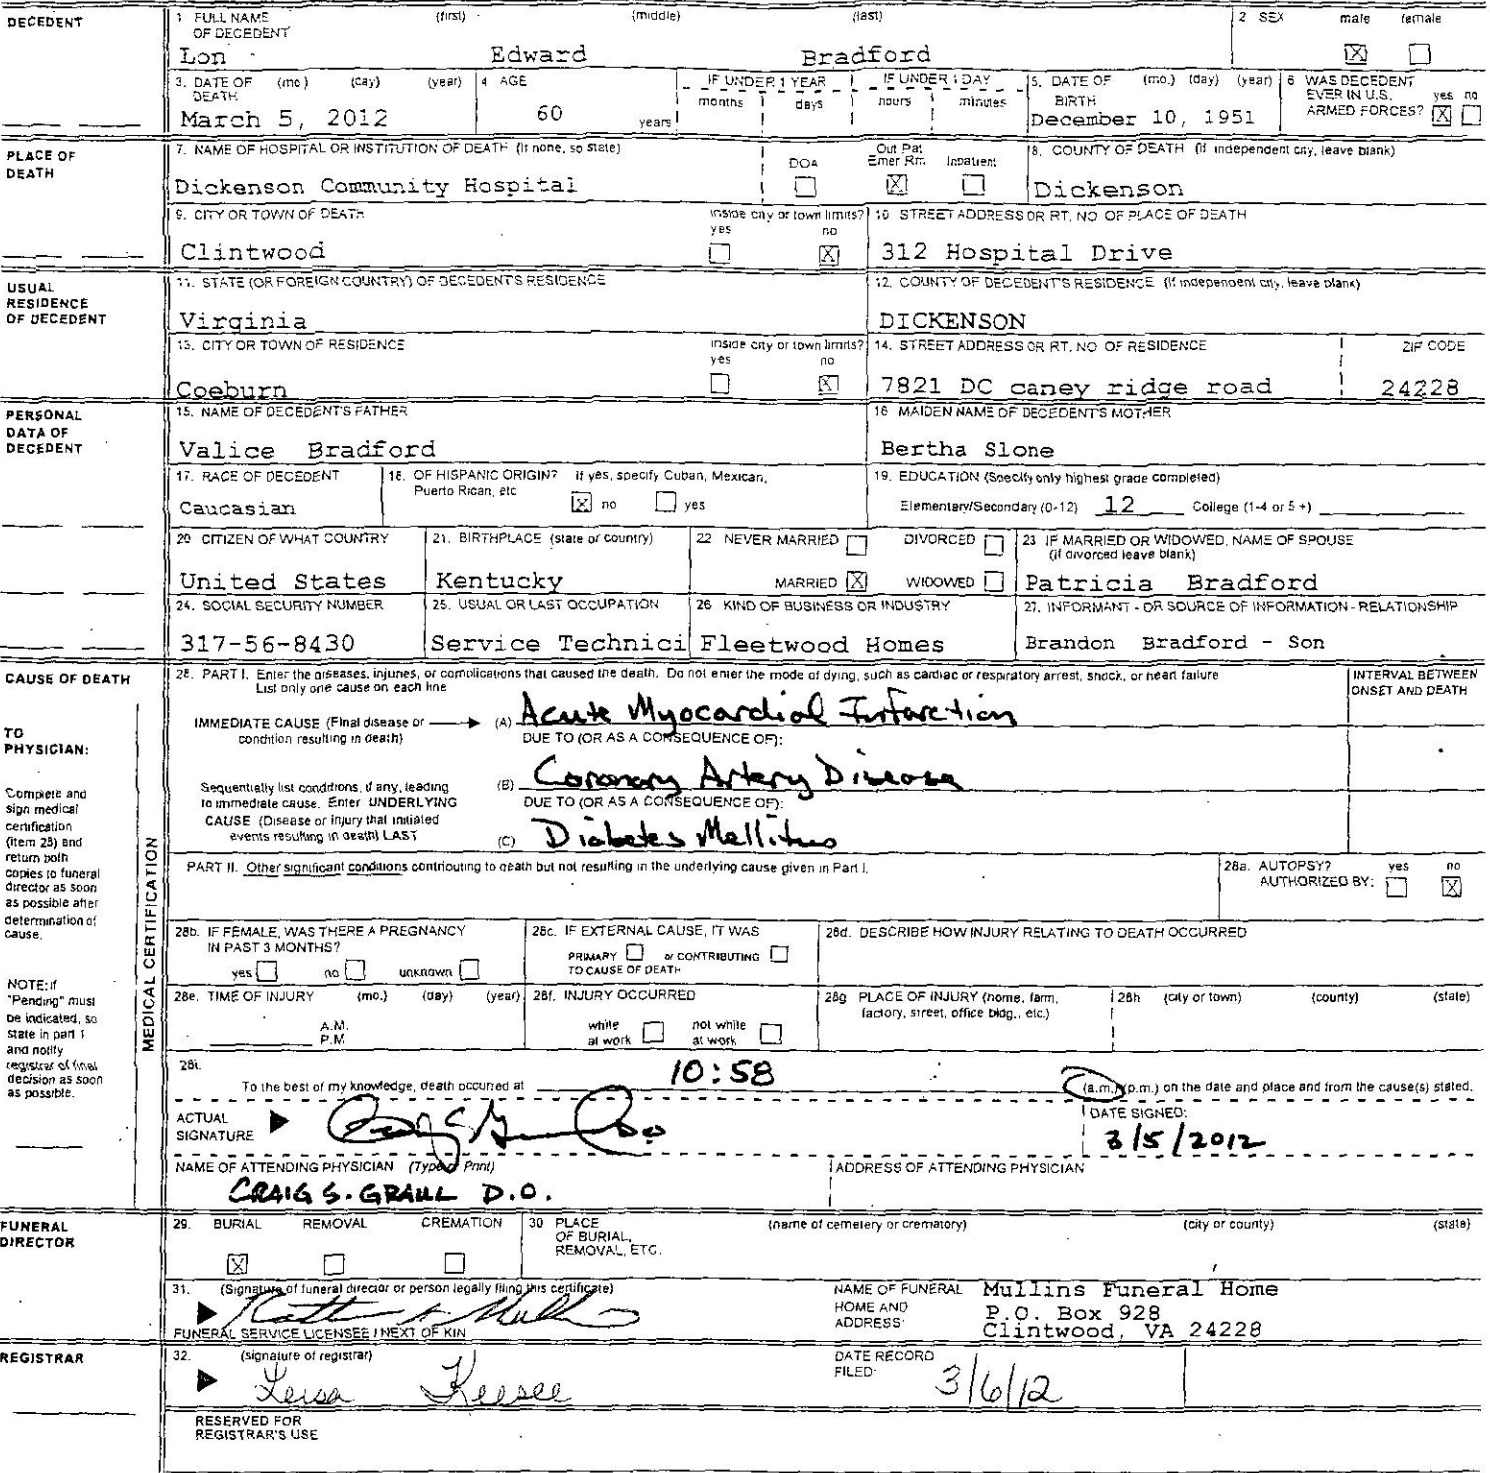 DECEDENT
1 FULL NAME OF DECEDENT (first) (middle) (last)
Lon Edward Bradford
2 SEX male female
X
3. DATE OF DEATH (mo) (day) (year)
March 5, 2012
4 AGE
60 years
IF UNDER 1 YEAR months days
IF UNDER 1 DAY hours minutes
5. DATE OF BIRTH (mo.) (day) (year)
December 10, 1951
6 WAS DECEDENT EVER IN U.S. ARMED FORCES? yes no
X
PLACE OF DEATH
7. NAME OF HOSPITAL OR INSTITUTION OF DEATH (If none, so state)
Dickenson Community Hospital
DOA Out Pat Emer Rm Inpatient
X
8. COUNTY OF DEATH (If independent city, leave blank)
Dickenson
9. CITY OR TOWN OF DEATH
Clintwood
inside city or town limits? yes no
X
10 STREET ADDRESS OR RT. NO OF PLACE OF DEATH
312 Hospital Drive
USUAL RESIDENCE OF DECEDENT
11. STATE (OR FOREIGN COUNTRY) OF DECEDENT'S RESIDENCE
Virginia
12. COUNTY OF DECEDENT'S RESIDENCE (If independent city, leave blank)
DICKENSON
13. CITY OR TOWN OF RESIDENCE
Coeburn
inside city or town limits? yes no
X
14. STREET ADDRESS OR RT. NO OF RESIDENCE ZIP CODE
7821 DC caney ridge road 24228
PERSONAL DATA OF DECEDENT
15. NAME OF DECEDENT'S FATHER
Valice Bradford
16 MAIDEN NAME OF DECEDENT'S MOTHER
Bertha Slone
17. RACE OF DECEDENT
Caucasian
18. OF HISPANIC ORIGIN? If yes, specify Cuban, Mexican, Puerto Rican, etc
X no yes
19. EDUCATION (Specify only highest grade completed)
Elementary/Secondary (0-12) 12 College (1-4 or 5+)
20 CITIZEN OF WHAT COUNTRY
United States
21. BIRTHPLACE (state or country)
Kentucky
22 NEVER MARRIED DIVORCED
MARRIED X WIDOWED
23 IF MARRIED OR WIDOWED, NAME OF SPOUSE (if divorced leave blank)
Patricia Bradford
24. SOCIAL SECURITY NUMBER
317-56-8430
25. USUAL OR LAST OCCUPATION
Service Technici
26 KIND OF BUSINESS OR INDUSTRY
Fleetwood Homes
27. INFORMANT - OR SOURCE OF INFORMATION - RELATIONSHIP
Brandon Bradford - Son
CAUSE OF DEATH
TO PHYSICIAN:
Complete and sign medical certification (item 28) and return both copies to funeral director as soon as possible after determination of cause.
NOTE: If "Pending" must be indicated, so state in part 1 and notify registrar of final decision as soon as possible.
MEDICAL CERTIFICATION
28. PART I. Enter the diseases, injuries, or complications that caused the death. Do not enter the mode of dying, such as cardiac or respiratory arrest, shock, or heart failure
List only one cause on each line
INTERVAL BETWEEN ONSET AND DEATH
IMMEDIATE CAUSE (Final disease or condition resulting in death) (A) Acute Myocardial Infarction
DUE TO (OR AS A CONSEQUENCE OF):
Sequentially list conditions, if any, leading to immediate cause. Enter UNDERLYING CAUSE (Disease or injury that initiated events resulting in death) LAST
(B) Coronary Artery Disease
DUE TO (OR AS A CONSEQUENCE OF):
(C) Diabetes Mellitus
PART II. Other significant conditions contributing to death but not resulting in the underlying cause given in Part I.
28a. AUTOPSY? yes no
AUTHORIZED BY: X
28b. IF FEMALE, WAS THERE A PREGNANCY IN PAST 3 MONTHS?
yes no unknown
28c. IF EXTERNAL CAUSE, IT WAS
PRIMARY or CONTRIBUTING
TO CAUSE OF DEATH
28d. DESCRIBE HOW INJURY RELATING TO DEATH OCCURRED
28e. TIME OF INJURY (mo.) (day) (year)
A.M.
P.M
28f. INJURY OCCURRED
while at work not while at work
28g PLACE OF INJURY (home, farm, factory, street, office bldg., etc.)
28h (city or town) (county) (state)
28i.
To the best of my knowledge, death occurred at 10:58 (a.m.) (p.m.) on the date and place and from the cause(s) stated.
ACTUAL SIGNATURE
DATE SIGNED:
3/5/2012
NAME OF ATTENDING PHYSICIAN (Type or Print)
CRAIG S. GRAUL D.O.
ADDRESS OF ATTENDING PHYSICIAN
FUNERAL DIRECTOR
29. BURIAL REMOVAL CREMATION
X
30 PLACE OF BURIAL, REMOVAL, ETC. (name of cemetery or crematory) (city or county) (state)
31. (Signature of funeral director or person legally filing this certificate)
FUNERAL SERVICE LICENSEE / NEXT OF KIN
NAME OF FUNERAL HOME AND ADDRESS:
Mullins Funeral Home
P.O. Box 928
Clintwood, VA 24228
REGISTRAR
32. (signature of registrar)
Leisa Keesee
DATE RECORD FILED:
3/6/12
RESERVED FOR REGISTRAR'S USE